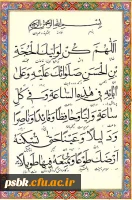 بِسْمِ اللّٰهِ الرَّحْمٰنِ الرَّحِيمِ
اَللّٰهُمَّ كُنْ لِوَلِيِّكَ الْحُجَّةِ
بْنِ الْحَسَنِ صَلَواتُكَ عَلَيْهِ وَعَلىٰ
آبائِهِ في هٰذِهِ السّاعَةِ وَفي كُلِّ
ساعَةٍ وَلِيّاً وَحافِظاً وَقائِداً وَناصِراً
وَدَليلاً وَعَيْناً حَتّىٰ تُسْكِنَهُ
اَرْضَكَ طَوْعاً وَتُمَتِّعَهُ فيها طَويلاً
psbk.cfu.ac.ir